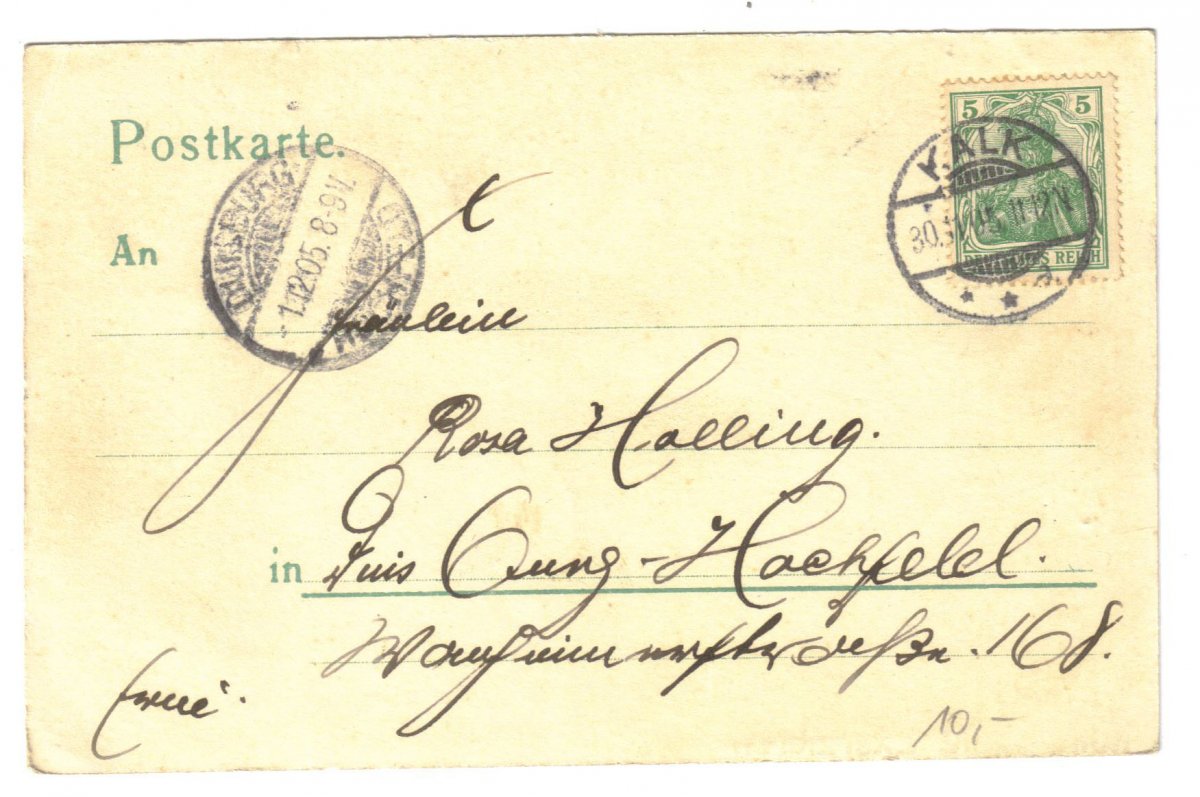 Postkarte.
5 5
KALK
30.11.05. 11-12 N
DEUTSCHES REICH
DUISBURG
1.12.05. 8-9 V.
HOCHFELD
An
Fräulein
Rosa Holling.
in Duisburg-Hochfeld.
Wanheimerstraße. 168.
10,-